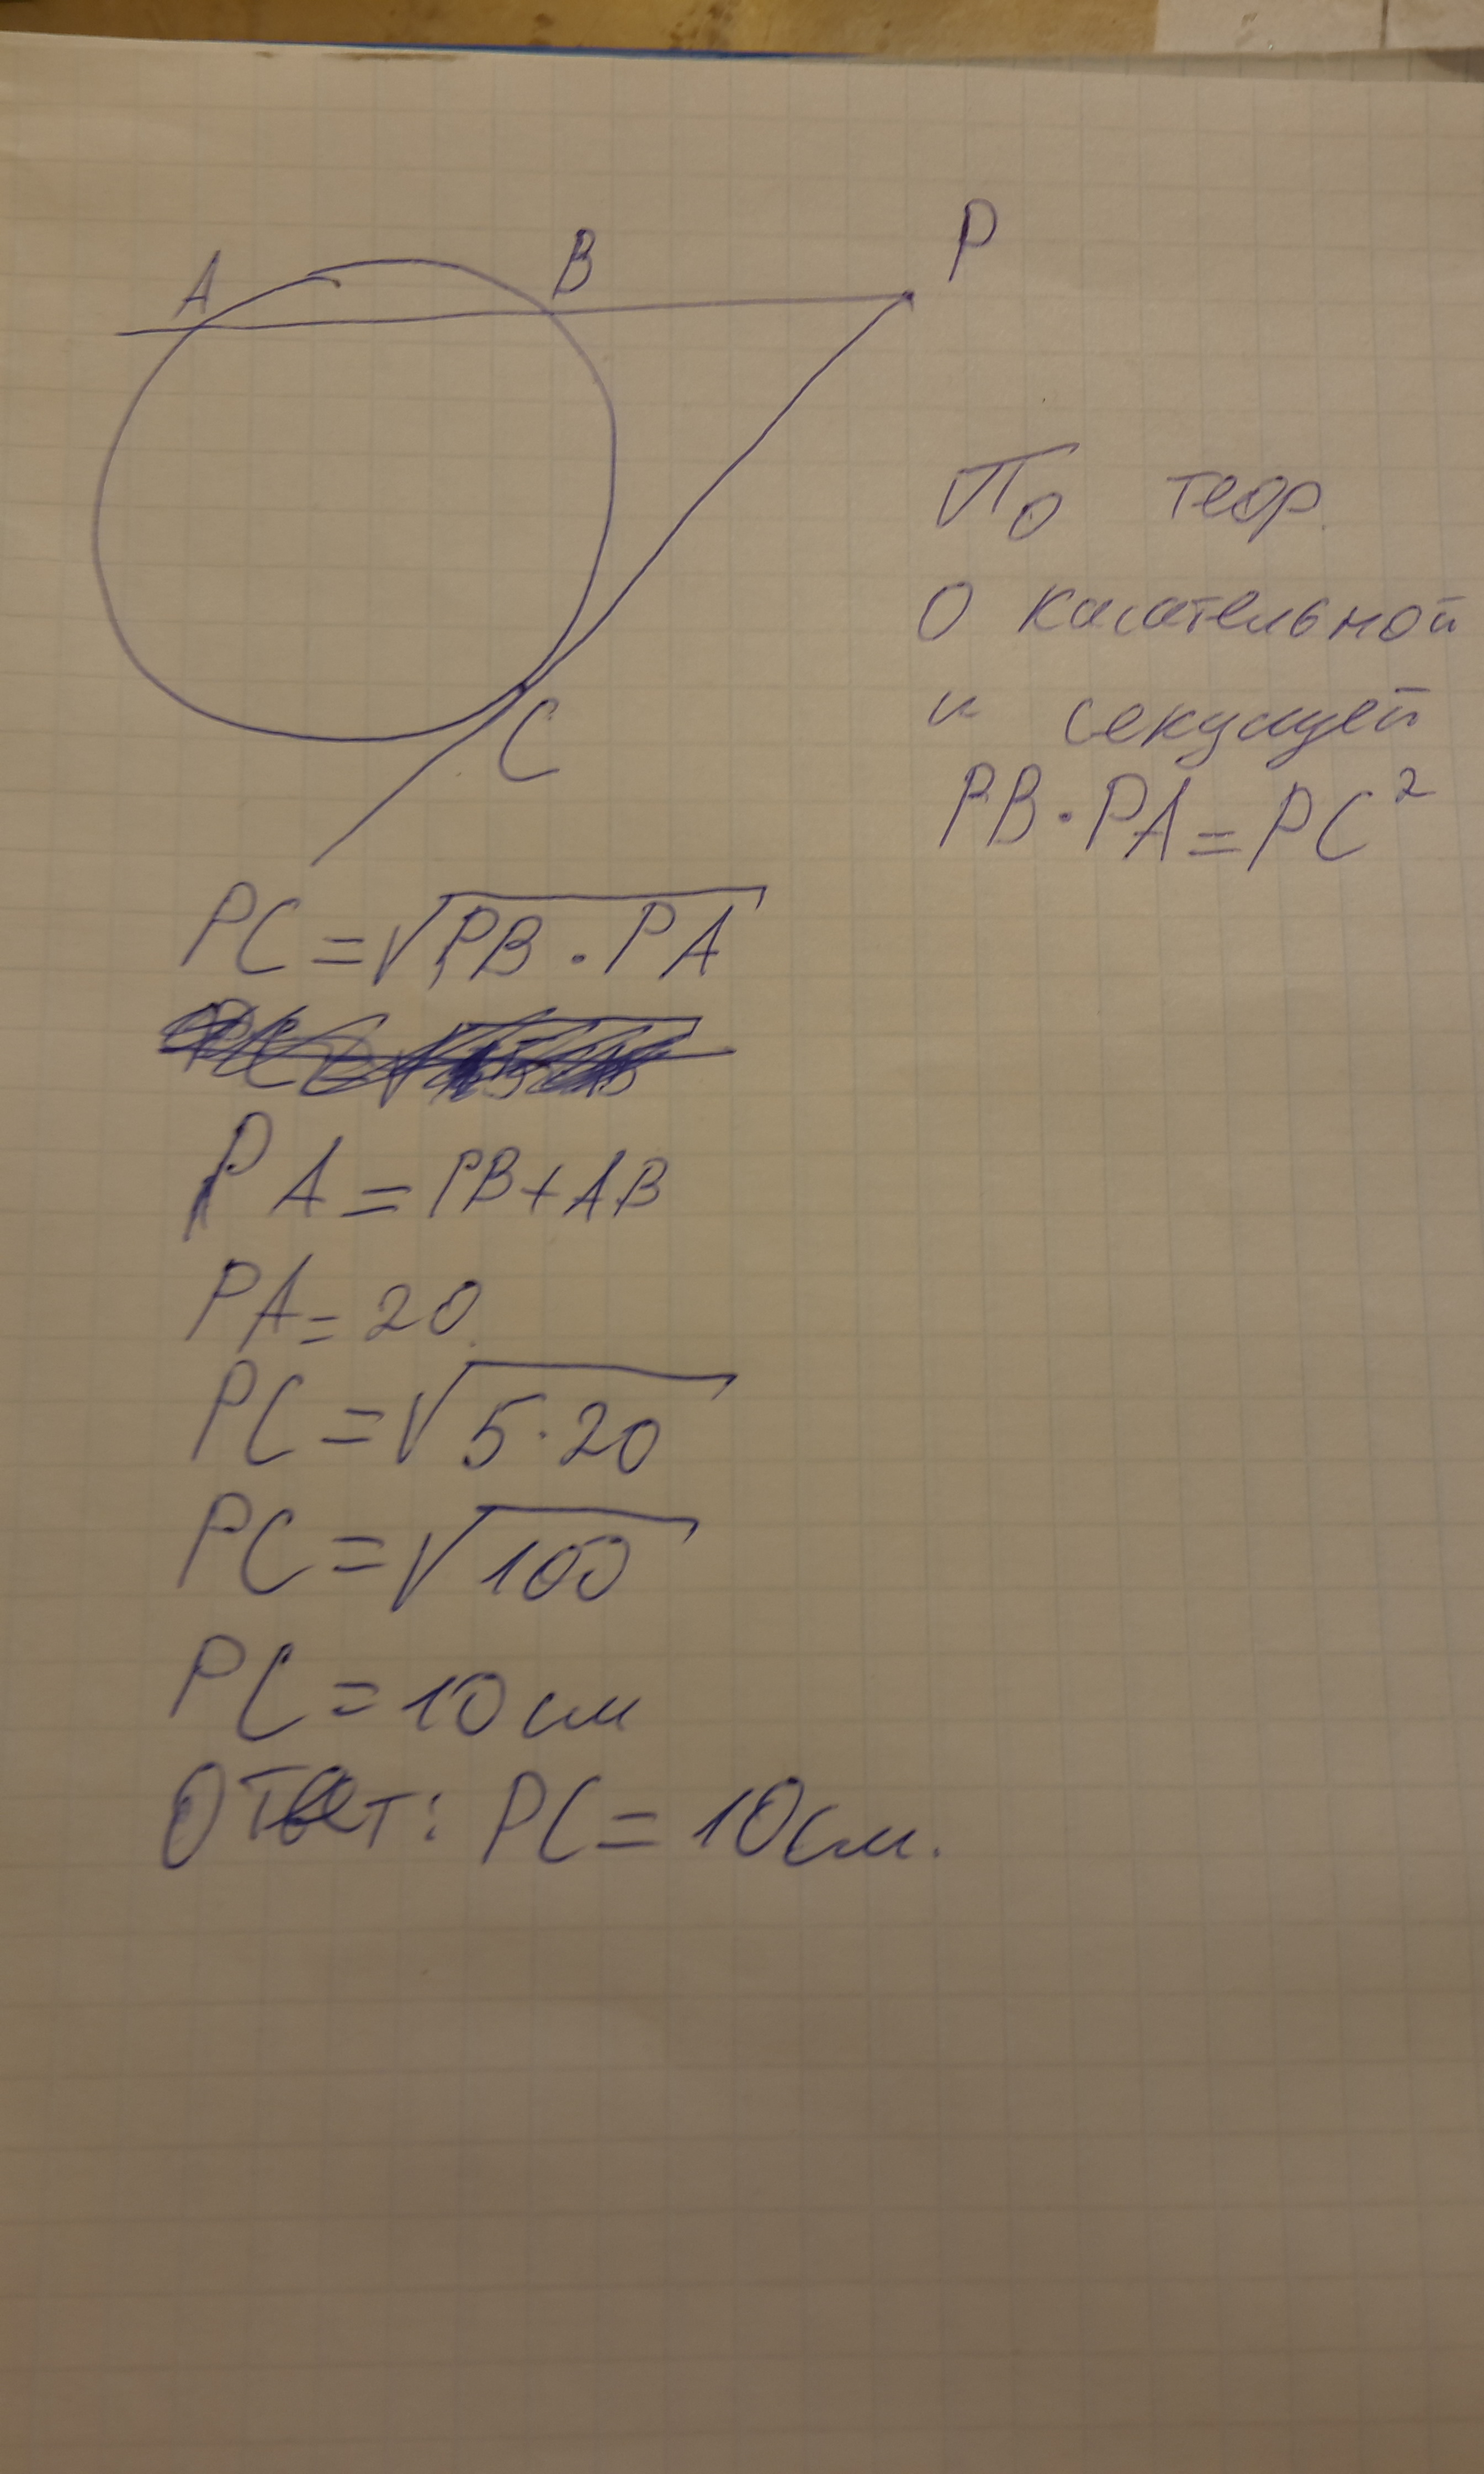 A B P
C
По теор.
о касательной
и секущей
PB·PA=PC²
PC=√PB·PA
PA=PB+AB
PA=20
PC=√5·20
PC=√100
PC=10см
Ответ: PC=10см.